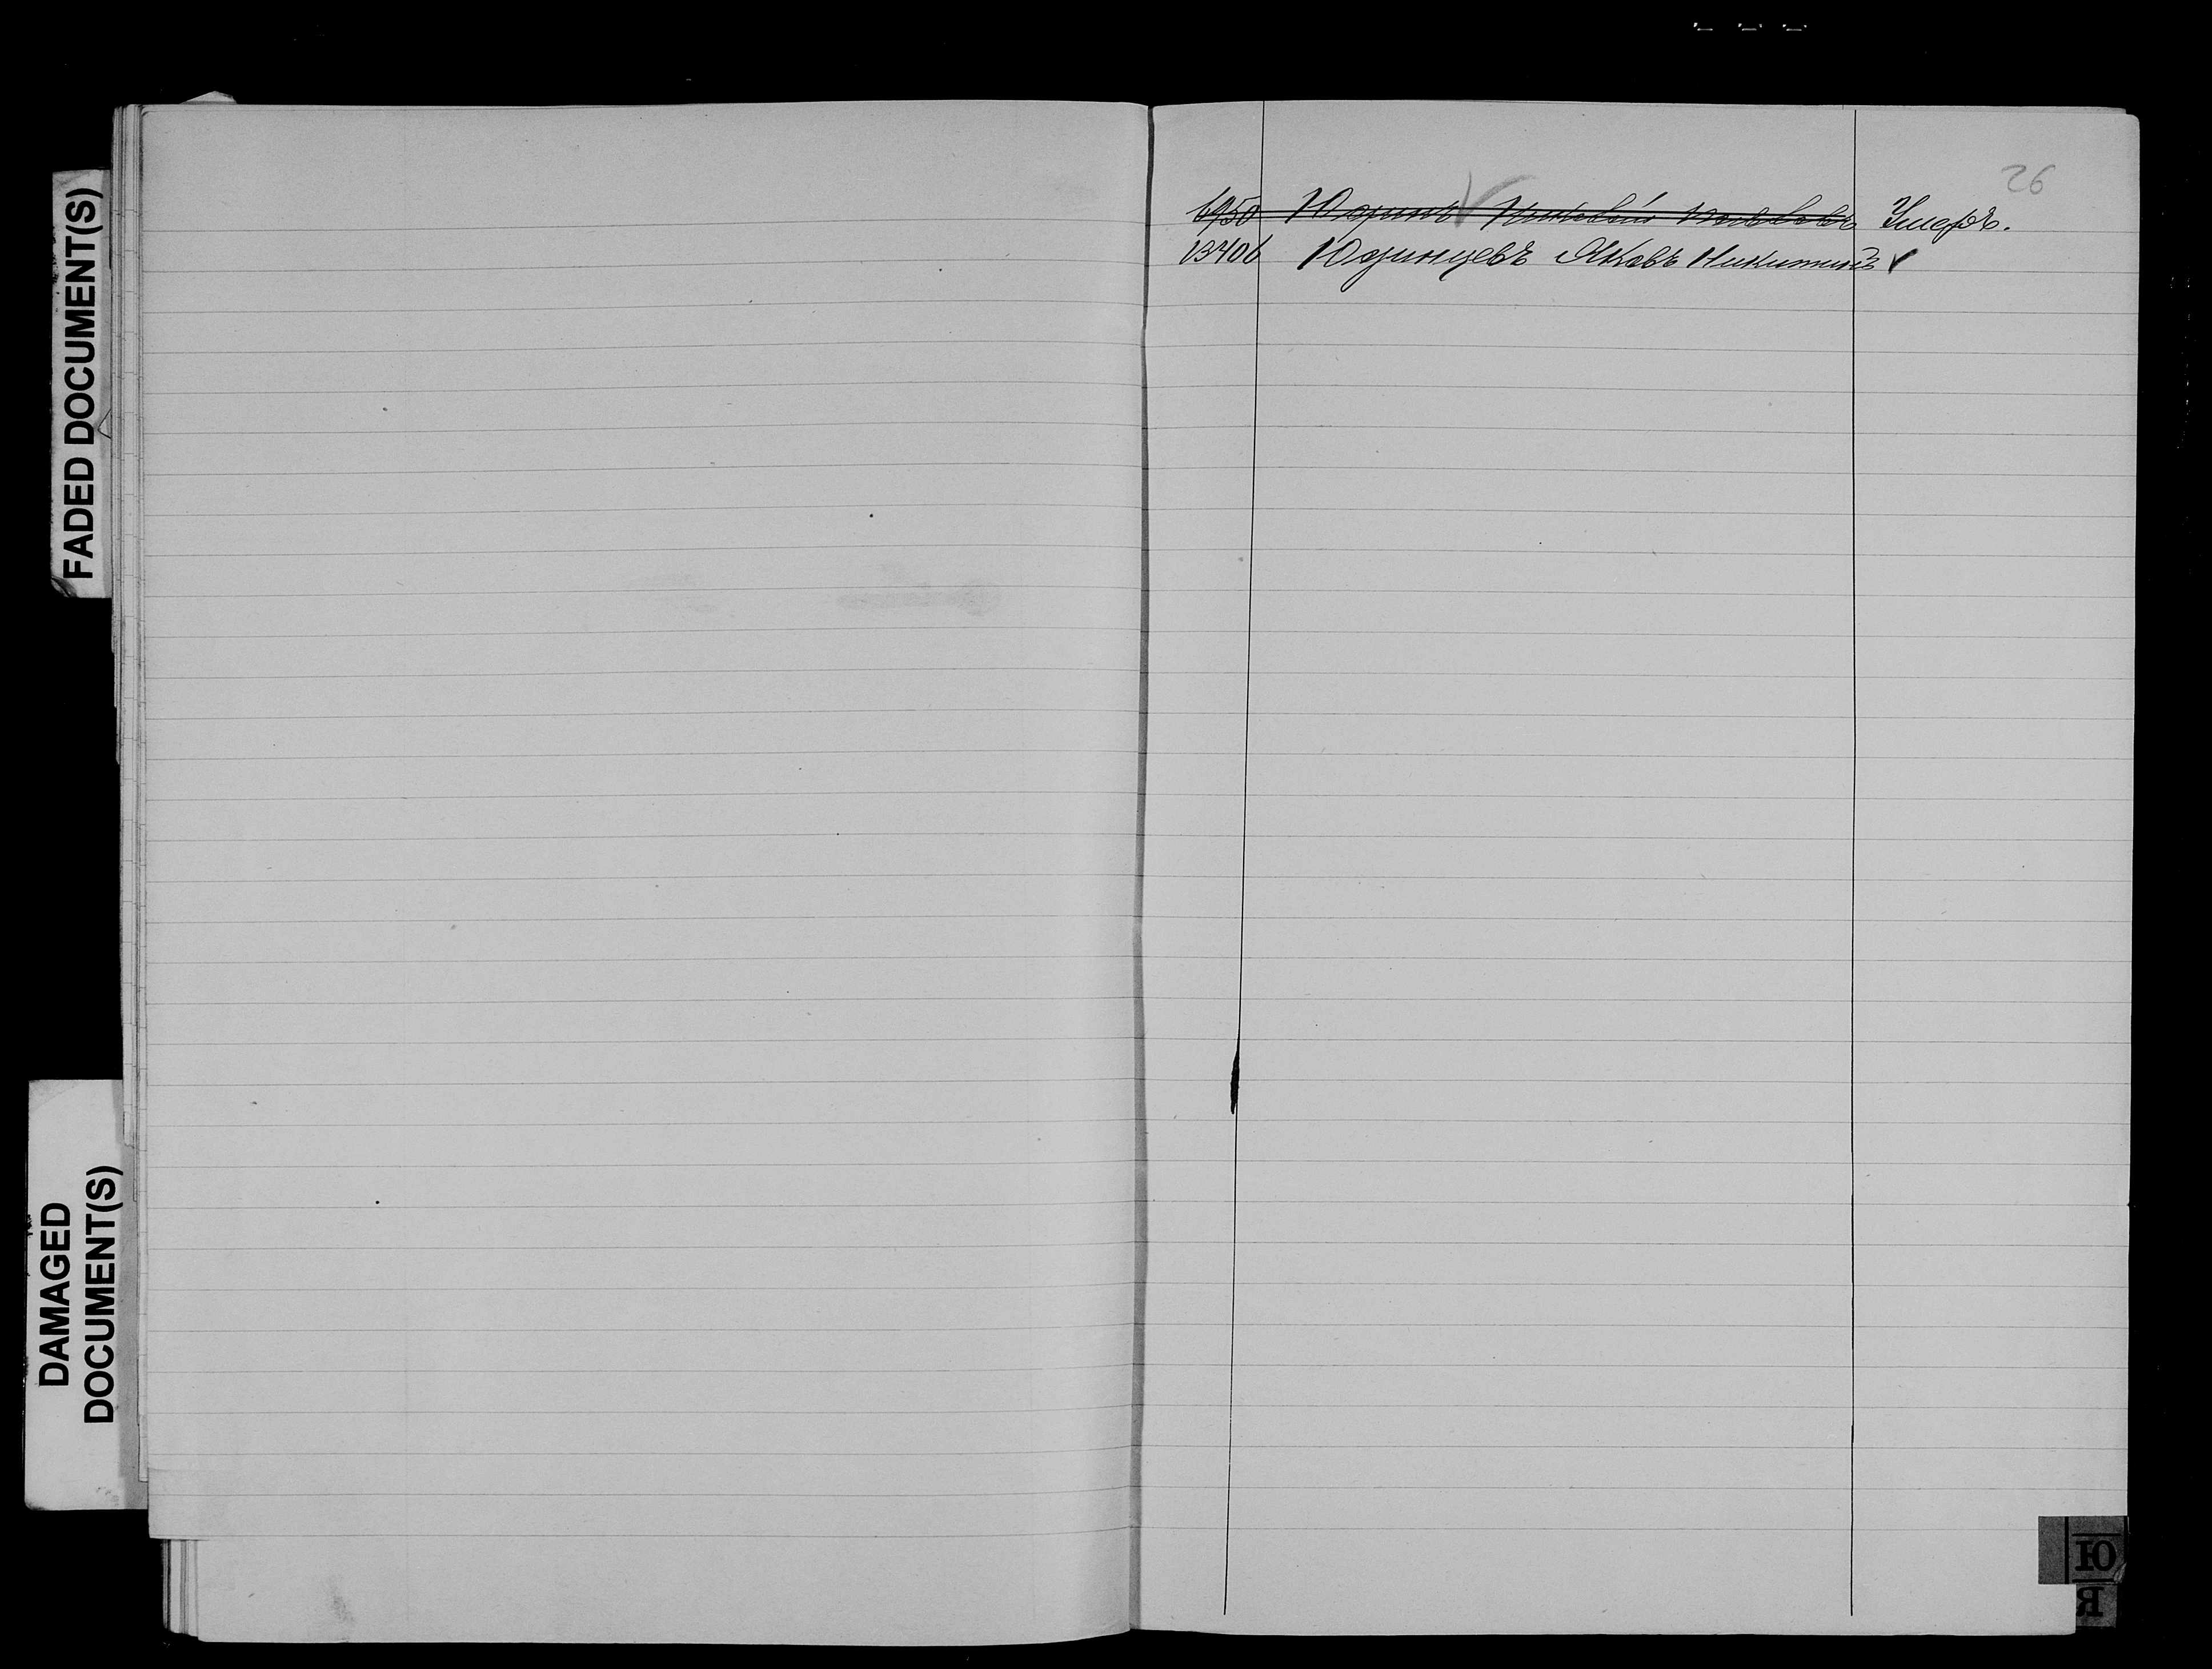 FADED DOCUMENT(S)
DAMAGED
DOCUMENT(S)
26
6950 Юдинъ Умеръ.
13406 Юдинцевъ Яковъ Никитинъ
Ю
Я